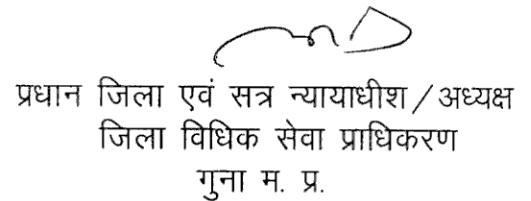 प्रधान जिला एवं सत्र न्यायाधीश/अध्यक्ष
जिला विधिक सेवा प्राधिकरण
गुना म. प्र.